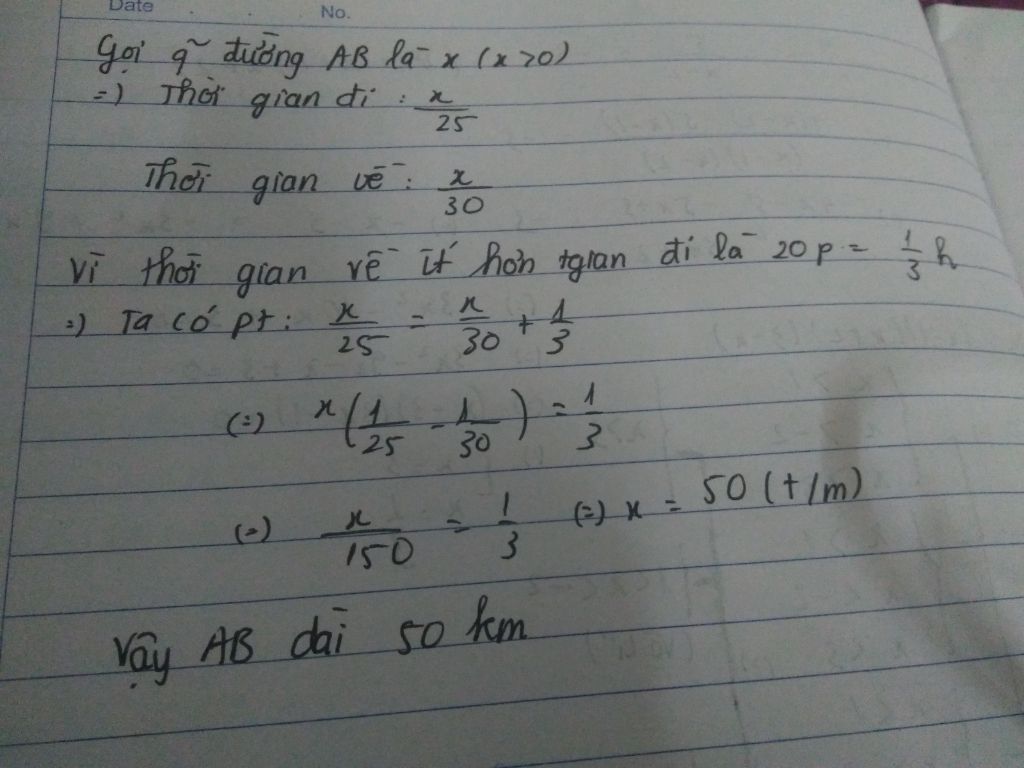 Date . . No.
Gọi q~ đường AB là x (x>0)
=) Thời gian đi : x/25
Thời gian về : x/30
Vì thời gian về ít hơn tgian đi là 20p = 1/3 h
=) Ta có pt: x/25 = x/30 + 1/3
(=) x(1/25 - 1/30) = 1/3
(=) x/150 = 1/3 (=) x = 50 (t/m)
Vậy AB dài 50 km